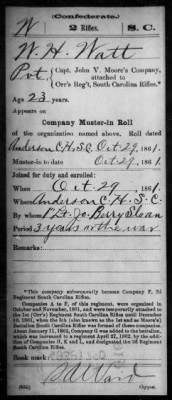 (Confederate.)
W 2 Rifles. S. C.
W. H. Watt
Pvt, Capt. John V. Moore's Company, attached to Orr's Reg't, South Carolina Rifles.*
Age 23 years.
Appears on
Company Muster-in Roll
of the organization named above. Roll dated
Anderson C. H. S. C. Oct 29, 1861.
Muster-in to date Oct 29, 1861.
Joined for duty and enrolled:
When Oct. 29, 1861.
Where Anderson C. H. S. C.
By whom J. Berry Sloan
Period 3 years or the war
Remarks:
*This company subsequently became Company F, 2d Regiment South Carolina Rifles.
Companies A to F, of this regiment, were organized in October and November, 1861, and were temporarily attached to the 1st (Orr's) Regiment South Carolina Rifles until December
Battalion South Carolina Rifles was formed of these companies about January 11, 1862; Company G was added to the battalion, which was increased to a regiment April 27, 1862, by the addition of Companies H, K and L, and designated the 2d Regiment South Carolina Rifles.
Book mark:
Ward
Copyist.